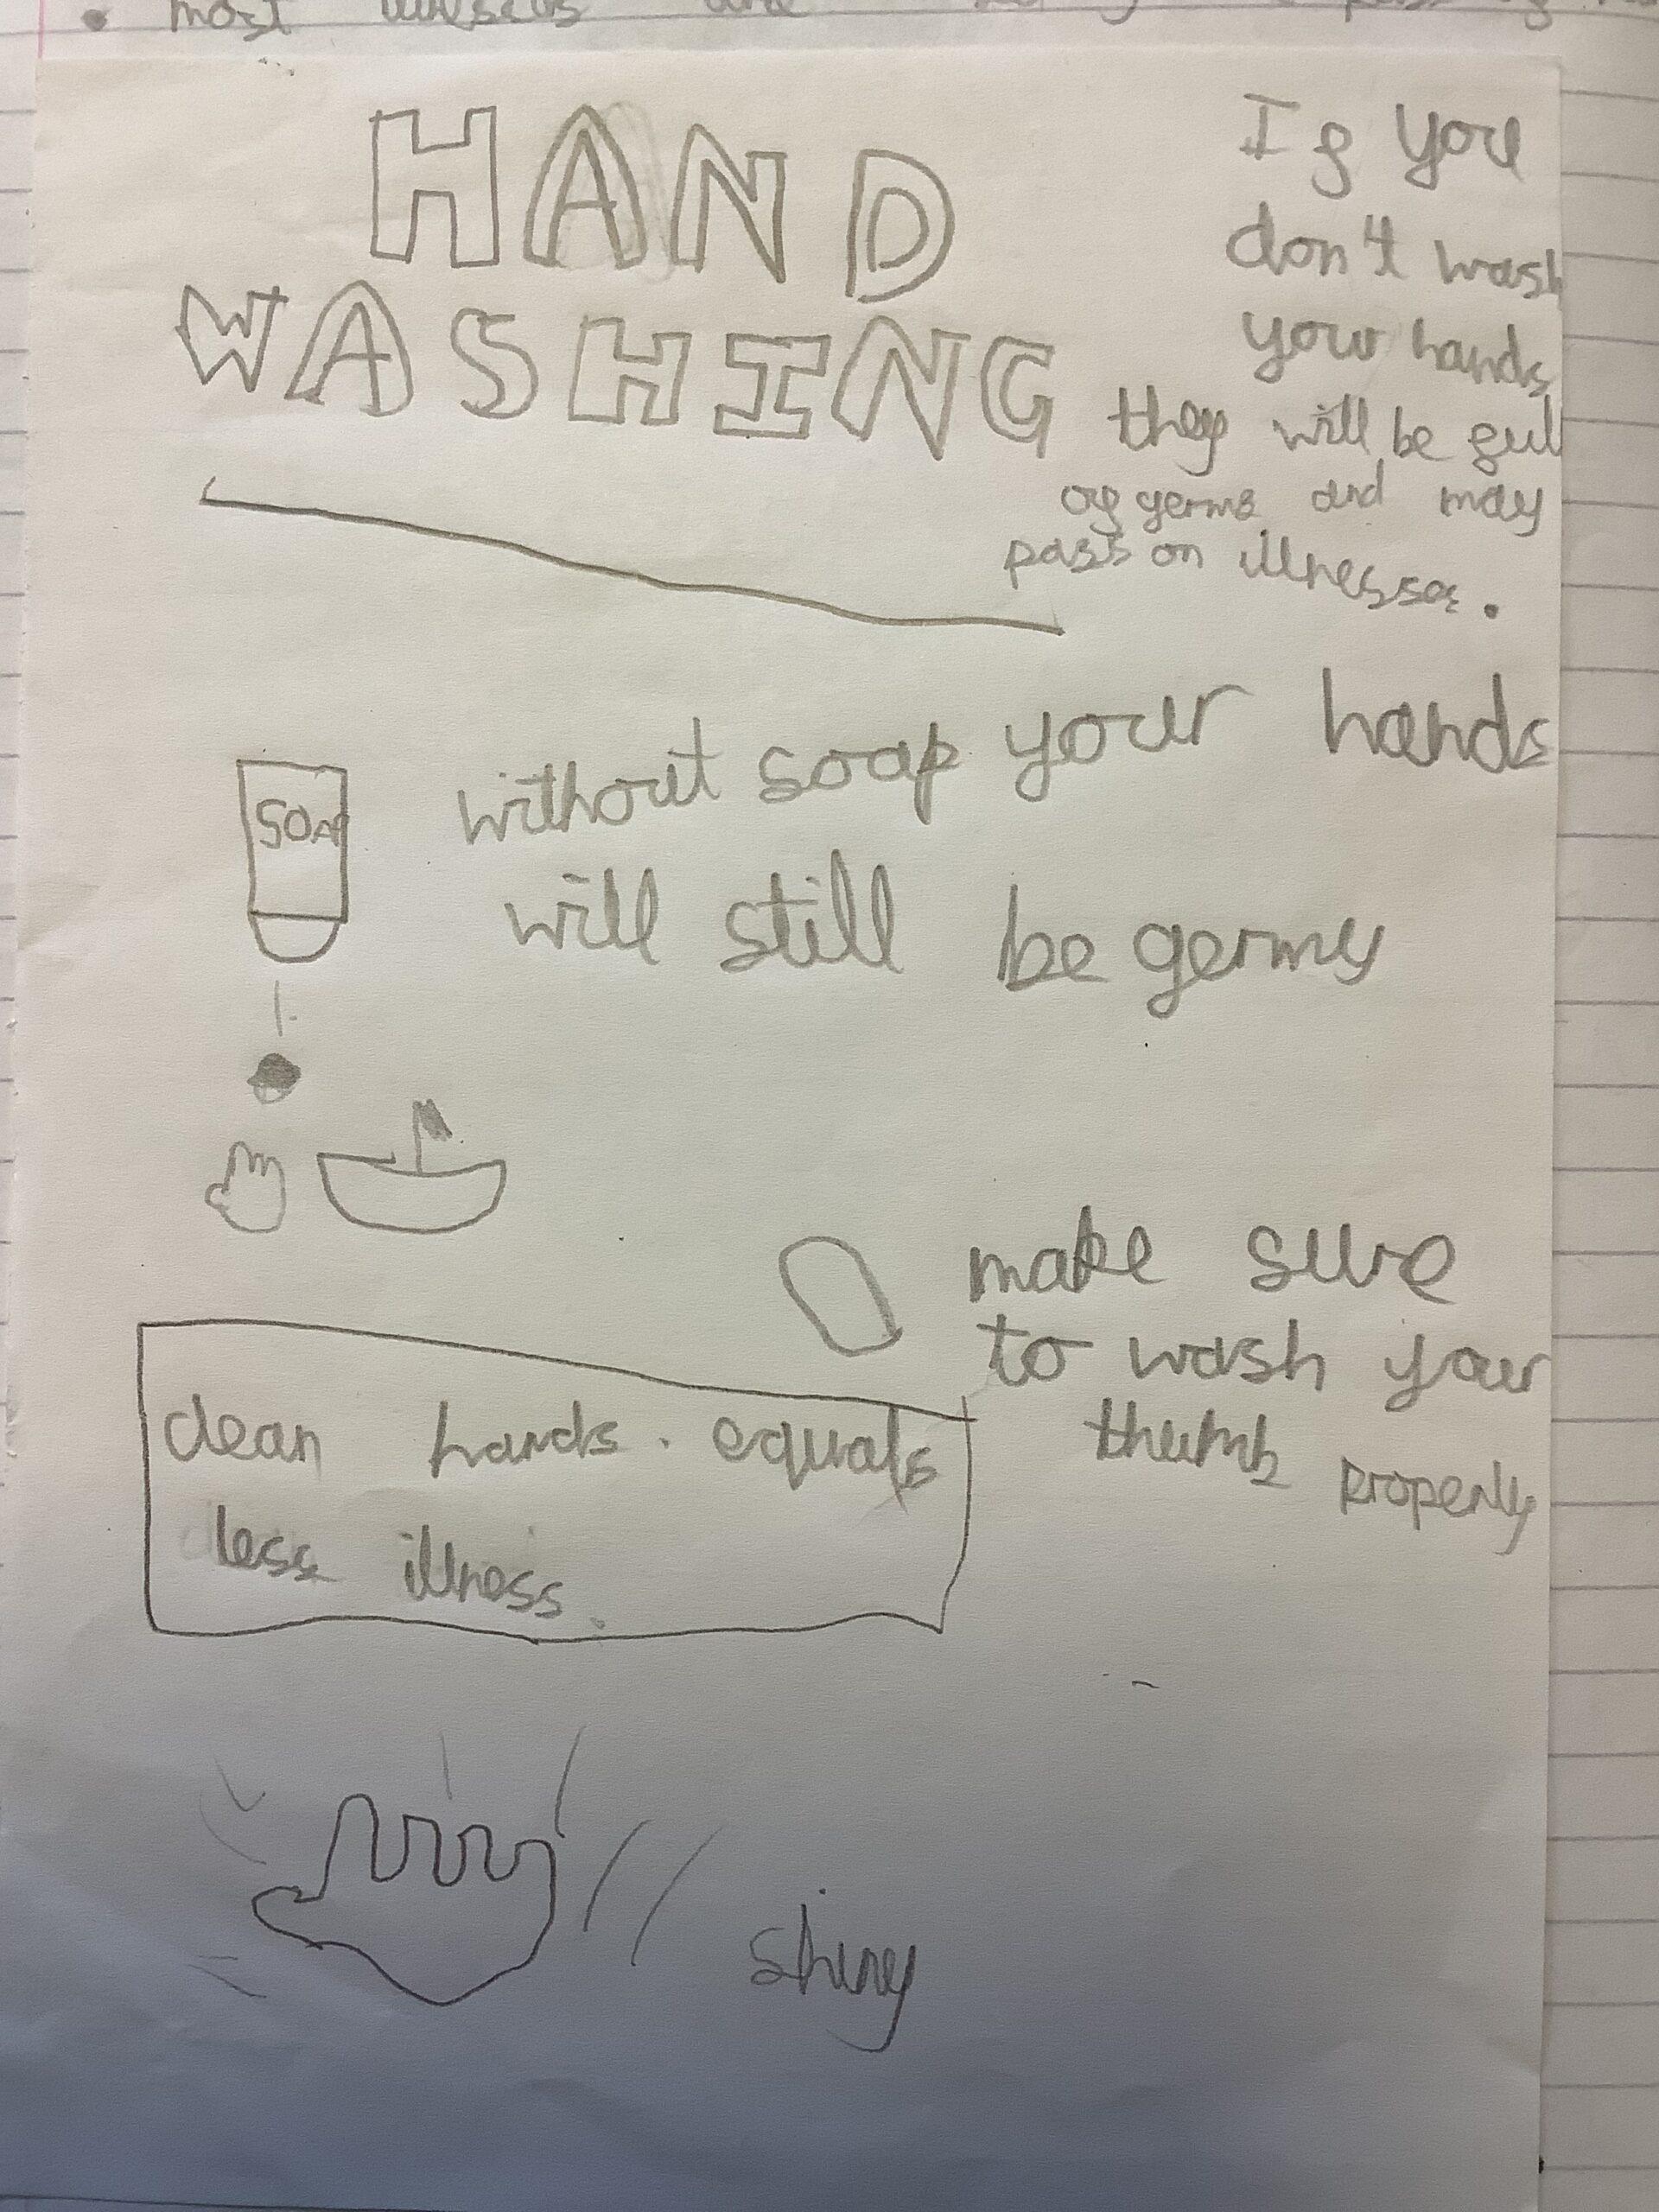 most
HAND
WASHING
If you
don't wash
your hands
they will be full
of germs and may
pass on illnesses.
SOAP
without soap your hands
will still be germy
make sure
to wash your
thumb properly
clean hands. equals
less illness.
shiny